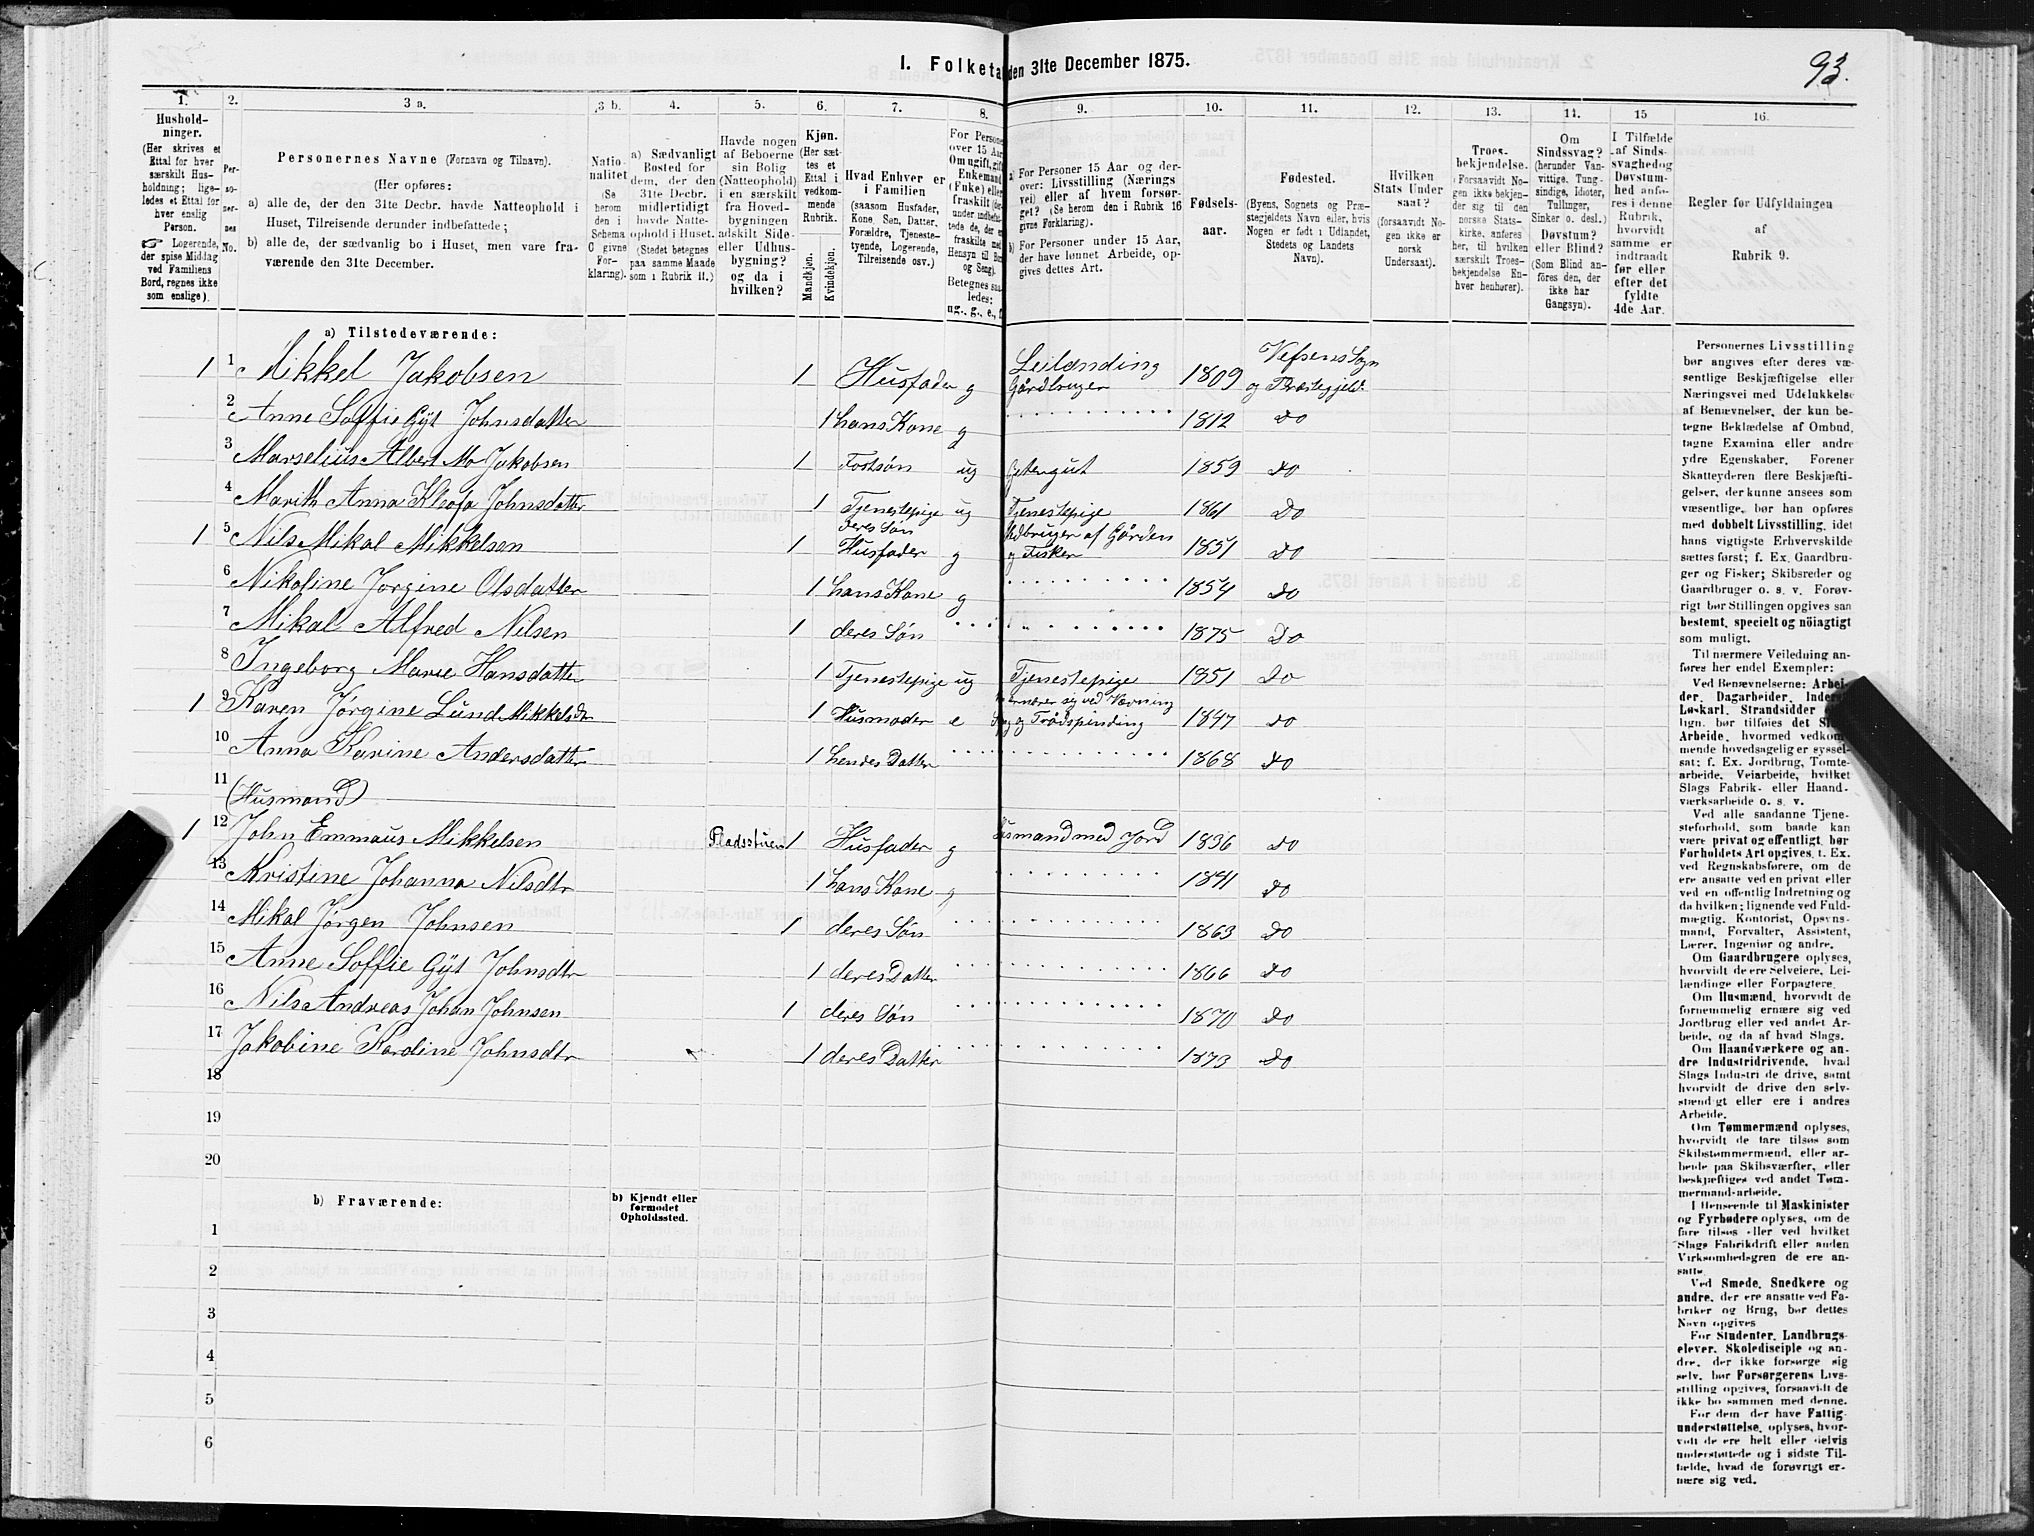 93.
I. Folketa den 31te December 1875.
1. 2. 3 a. 3 b. 4. 5. 6. 7. 8. 9. 10. 11. 12. 13. 14. 15 16.
Hushold-
ninger.
(Her skrives et
Ettal for hver
særskilt Hus-
holdning; lige-
ledes et Ettal for
hver enslig
Person.
☞ Logerende,
der spise Middag
ved Familiens
Bord, regnes ikke
som enslige).
Per-
so-
ner-
nes
No.
Personernes Navne (Fornavn og Tilnavn).
(Her opføres:
a) alle de, der den 31te Decbr. havde Natteophold i
Huset, Tilreisende derunder indbefattede;
b) alle de, der sædvanlig bo i Huset, men vare fra-
værende den 31te December.
Natio-
nalitet
(Se
herom
den i
Schema
C givne
For-
klaring).
a) Sædvanligt
Bosted for
dem, der den
31te Decbr.
midlertidigt
havde Natte-
ophold i Huset.
(Stedet betegnes
paa samme Maade
som i Rubrik 11.)
Havde nogen
af Beboerne
sin Bolig
(Natteophold)
i en særskilt
fra Hoved-
bygningen
adskilt Side-
eller Udhus-
bygning?
og da i
hvilken?
Kjøn.
(Her sæt-
tes et
Ettal i
vedkom-
mende
Rubrik.
Mandkjøn.
Kvindekjøn.
Hvad Enhver er
i Familien
(saasom Husfader,
Kone, Søn, Datter,
Forældre, Tjeneste-
tyende, Logerende,
Tilreisende osv.)
For Persone
over 15 Aar
Om ugift, gift
Enkemand
(Enke) eller
fraskilt
Betegnes saa
ledes:
ug., g., e., f.
a) For Personer 15 Aar og der-
over: Livsstilling (Nærings
vei) eller af hvem forsør-
get? (Se herom den i Rubrik 16
givne Forklaring).
b) For Personer under 15 Aar,
der have lønnet Arbeide, op-
gives dettes Art.
Fødsels-
aar.
Fødested.
(Byens, Sognets og Præ-
stegjeldets Navn eller, hvis
Nogen er født i Udlandet,
Stedets og Landets
Navn).
Hvilken
Stats Under
saat?
(forsaavidt No-
gen ikke er
norsk
Undersaat).
Troes-
bekjendelse.
(Forsaavidt No-
gen ikke bekjen-
der sig til den
norske Stats-
kirke, anføres
her, til hvilken
særskilt Troes-
bekjendelse En-
hver henhører).
Om
Sindssvag?
(herunder Van-
vittige, Tung-
sindige, Idioter,
Tullinger,
Sinker o. desl.)
Døvstum?
eller Blind?
(Som Blind an-
føres den, der
ikke har
Gangsyn).
I Tilfælde
af Sinds-
svaghed og
Døvstum-
hed anfø-
res i denne
Rubrik,
hvorvidt
samme er
indtraadt
før eller
efter det
fyldte
4de Aar.
Regler for Udfyldningen
af
Rubrik 9.
a) Tilstedeværende:
1 1 Mikkel Jakobsen 1 Husfader g Leilænding Gårdbruger 1809 Vefsens Sogn og Præstegjeld
2 Anne Soffie Gÿt Johnsdatter 1 hans Kone g 1812 do
3 Marselius Albert Mo Jakobsen 1 Fostsøn ug Gjetergut 1859 do
4 Marith Anna Kleofa Johnsdatter 1 Tjenestepige ug Tjenestepige 1861 Do
1 5 Nils Mikal Mikkelsen 1 deres Søn Husfader g Medbruger af Gården og Fisker 1851 do
6 Nikoline Jørgine Olsdatter 1 hans Kone g 1854 do
7 Mikal Alfred Nilsen 1 deres Søn 1875 Do
8 Ingeborg Marie Hansdatter 1 Tjenestepige ug Tjenestepige 1851 Do
1 9 Karen Jørgine Lund Mikkelsdr 1 Husmoder e ernærer sig ved Vævning og Trådspinding 1847 do
10 Anna Karine Andersdatter 1 hendes Datter 1868 do
11 (Husmand)
1 12 John Emmaus Mikkelsen Pladsstuen 1 Husfader g Husmand med Jord 1836 do
13 Kristine Johanna Nilsdtr 1 hans Kone g 1841 do
14 Mikal Jørgen Johnsen 1 deres Søn 1863 do
15 Anne Soffie Gÿt Johnsdtr 1 deres Datter 1866 do
16 Nils Andreas Johan Johnsen 1 deres Søn 1870 do
17 Jakobine Karoline Johnsdtr 1 deres Datter 1873 do
18
19
20
b) Fraværende:
b) Kjendt eller
formodet
Opholdssted.
1
2
3
4
5
6
Personernes Livsstilling
bør angives efter deres væ-
sentlige Beskjæftigelse eller
Næringsvei med Udelukkelse
af Benævnelser, der kun be-
tegne Beklædelse af Ombud,
tagne Examina eller andre
ydre Egenskaber. Forener
Skatteyderen flere Beskjæfti-
gelser, der kunne ansees som
væsentlige, bør han opføres
med dobbelt Livsstilling, idet
hans vigtigste Erhvervskilde
sættes først; f. Ex. Gaardbru-
ger og Fisker; Skibsreder og
Gaardbruger o. s. v. Forøv-
rigt bør Stillingen opgives saa
bestemt, specielt og nöiagtigt
som muligt.
Til nærmere Veiledning an-
føres her endel Exempler:
Ved Benævnelserne: Arbei-
der, Dagarbeider, Inderst
Løskarl, Strandsidder
lign. bør tilføies det Sl
Arbeide, hvormed vedkom-
mende hovedsagelig er syssel-
sat; f. Ex. Jordbrug, Tomte-
arbeide, Veiarbeide, hvilket
Slags Fabrik- eller Haand-
værksarbeide o. s. v.
Ved alle saadanne Tjene-
steforhold, som baade kan
være privat og offentligt, bør
Forholdets Art opgives, t. Ex.
ved Regnskabsførere, om de
ere ansatte ved en privat eller
ved en offentlig Indretning og
da hvilken; lignende ved Fuld-
mægtig, Kontorist, Opsyns-
mand, Forvalter, Assistent,
Lærer, Ingeniør og andre.
Om Gaardbrugere oplyses,
hvorvidt de ere Selveiere, Lei-
lændinge eller Forpagtere.
Om Husmænd, hvorvidt de
fornemmelig ernære sig ved
Jordbrug eller ved andet Ar-
beide, og da af hvad Slags.
Om Haandværkere og an-
dre Industridrivende, hvad
Slags Industri de drive, samt
hvorvidt de drive den selv-
stændigt eller ere i andres
Arbeide.
Om Tømmermænd oplyses,
hvorvidt de fare tilsøs som
Skibstømmermænd, eller ar-
beide paa Skibsværfter, eller
beskjæftiges ved andet Tøm-
mermand-arbeide.
I Henseende til Maskinister
og Fyrbødere oplyses, om de
fare tilsøs eller ved hvilket
Slags Fabrikdrift eller anden
Virksomhedsgren de ere an-
satte.
Ved Smede, Snedkere og
andre, der ere ansatte ved Fa-
briker og Brug, bør dettes
Navn opgives
For Studenter, Landbrugs-
elever, Skoledisciple og an-
dre, der ikke forsørge sig
selv, bør Forsørgerens Livs-
stilling opgives, forsaavidt de
ikke bo sammen med denne.
For dem, der have Fattig-
understøttelse, oplyses, hvor-
vidt de ere helt eller delvis
understøttede og i sidste Til-
fælde, hvad de forøvrigt er-
nære sig ved.